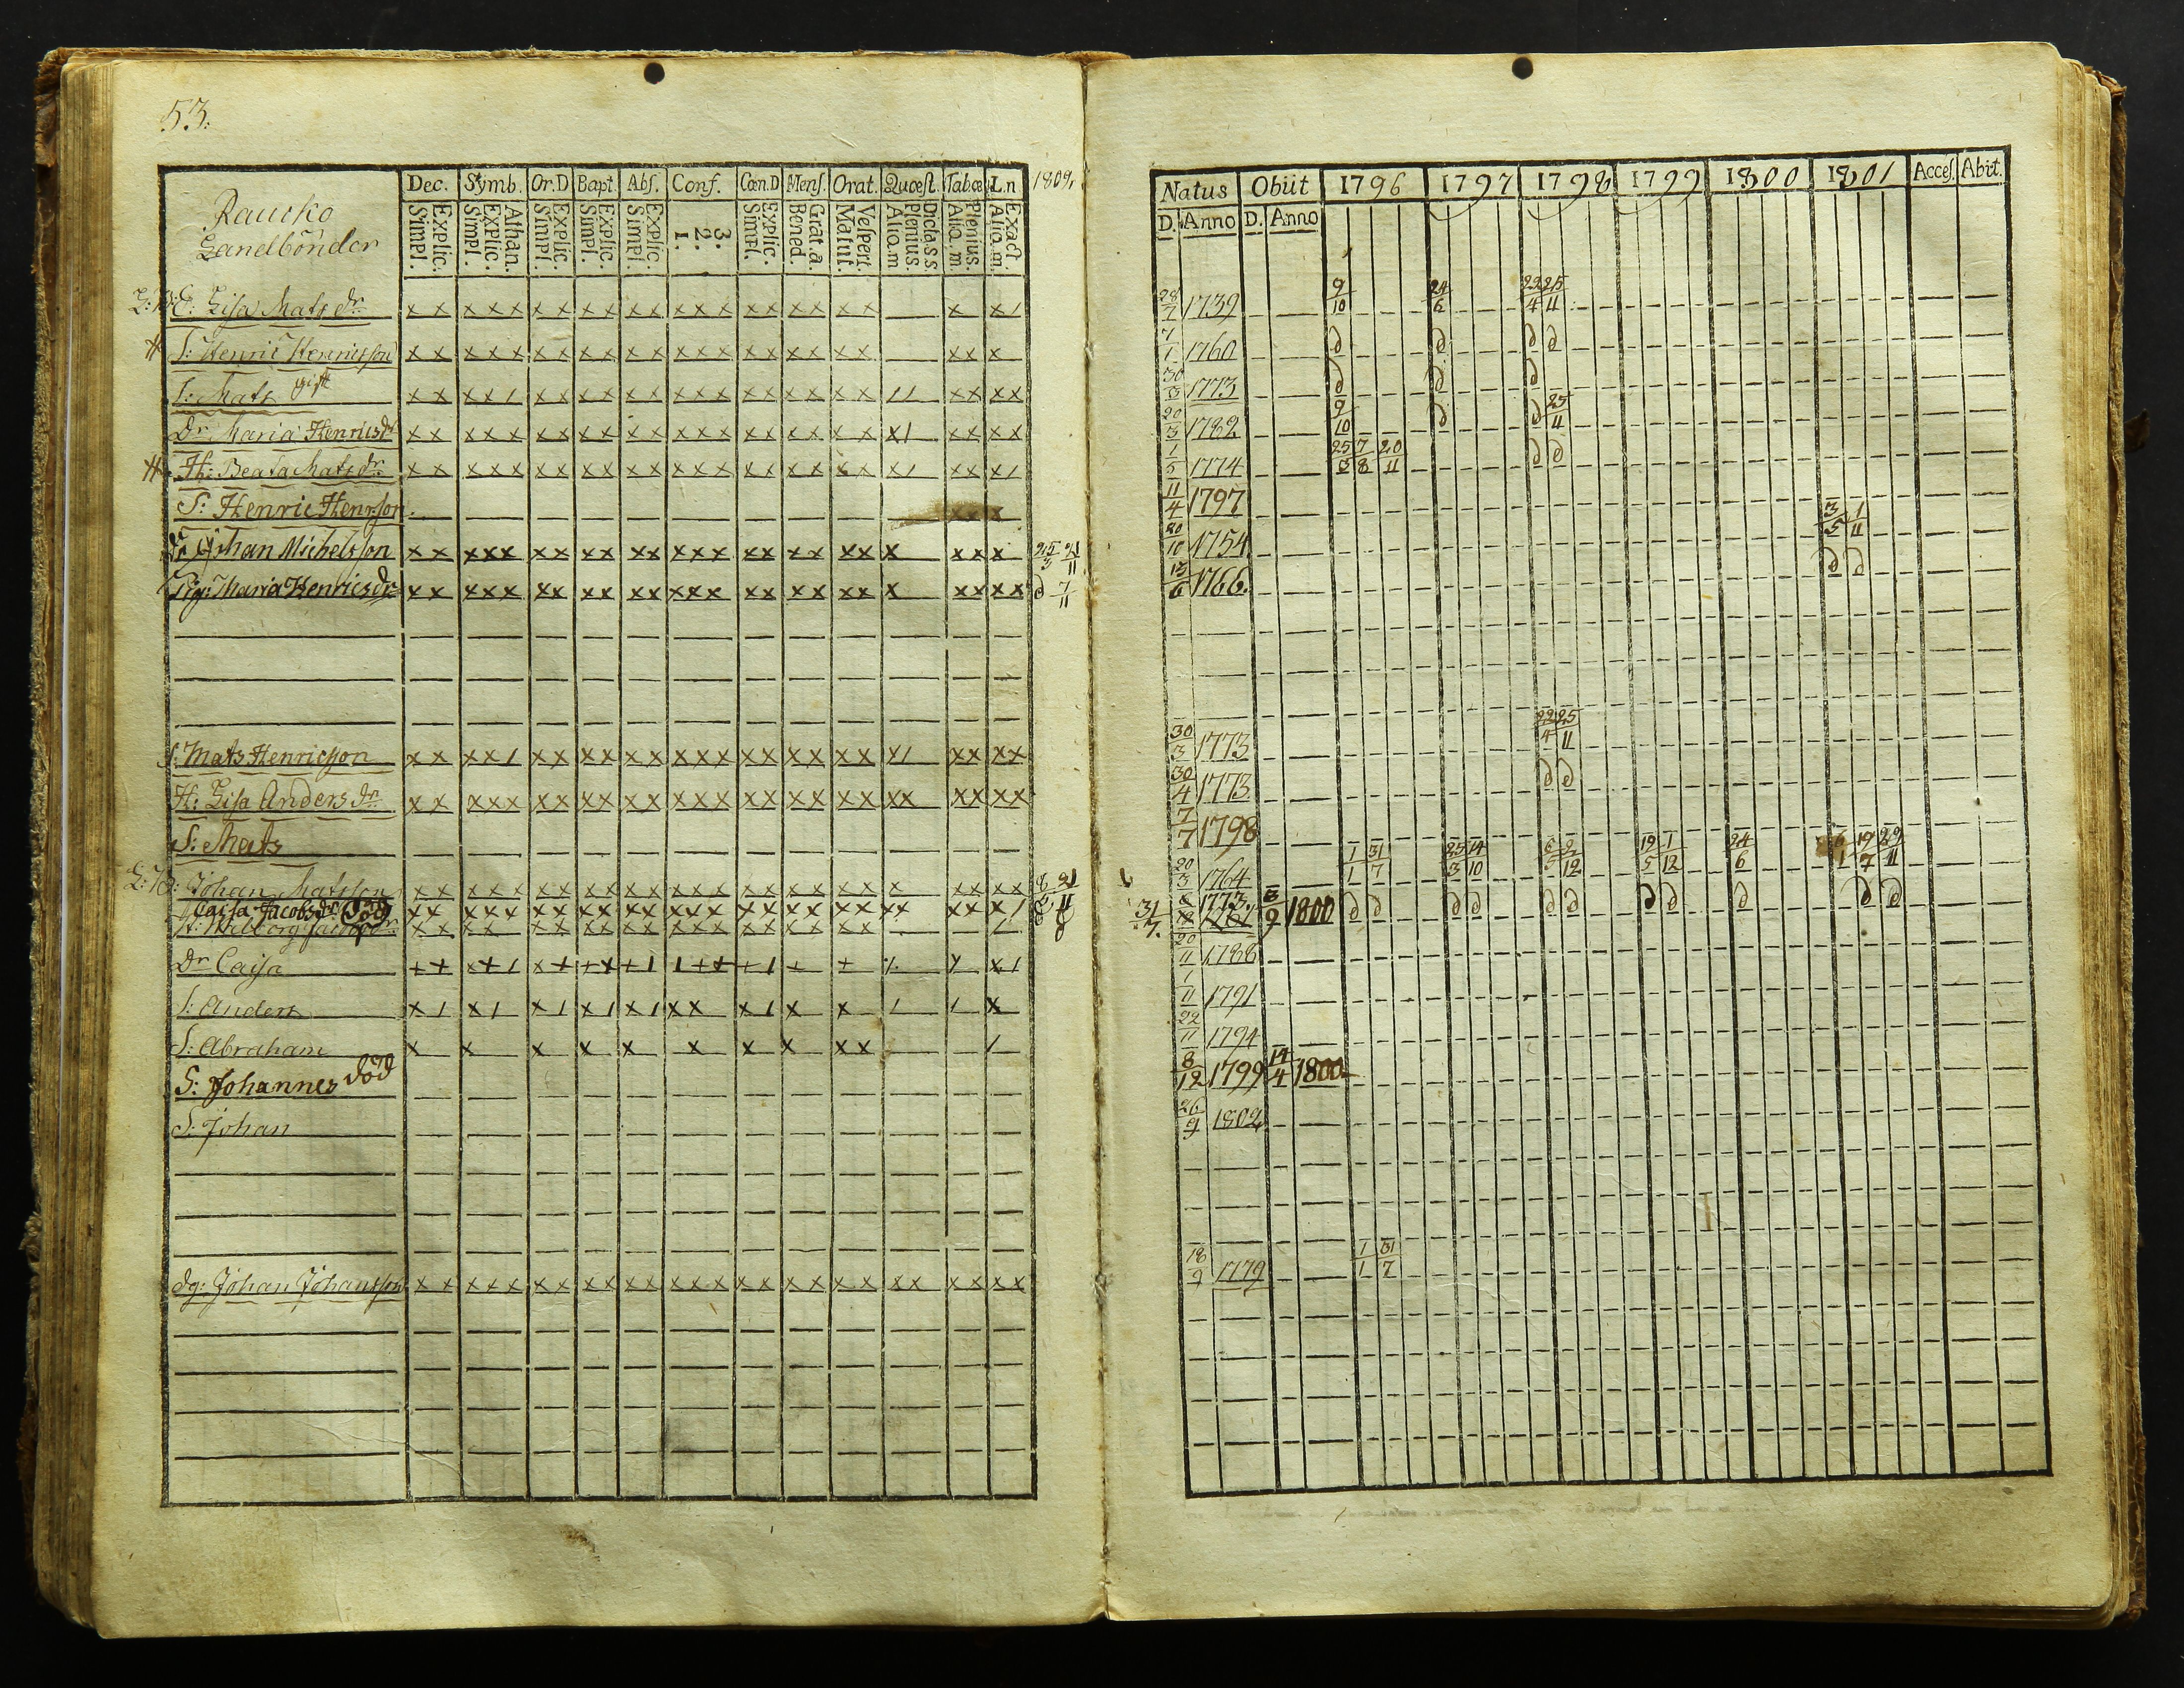 53.
Dec. Symb. Or.D Bapt. Abſ. Conf. Cœn.D Menſ. Orat. Quœſt. Tab.œ L.n 1802,
Landbönder
Explic. Simpl. Athan. Explic. Simpl. Explic. Simpl. Explic. Simpl. Explic. Simpl. 3. 2. 1. Explic. Simpl. Grat. a. Bened. Veſpert. Matut. Dicta S.S. Plenius. Aliq. m Plenius. Aliq. m. Exact Aliq. m.
E: Lisa Mats dr x x x x x x x x x x x x x x x x x x x x x /
S: Henric Henricsson x x x x x x x x x x x x x x x x x x x x x x
S: Mats gift x x x x / x x x x x x x x x x x x x x x / / x x x x
Dr Maria Henricsdr x x x x x x x x x x x x x x x x x x x x x / x x x x
H: Beata Matsdr x x x x x x x x x x x x x x x x x x x x x / x x x /
S: Henric Henrsson
Johan Michelsson x x x x x x x x x x x x x x x x x x x x x x x x 25/3 21/11
Pig: Maria Henricsdr x x x x x x x x x x x x x x x x x x x x x x x x x d 7/11
S: Mats Henricsson x x x x / x x x x x x x x x x x x x x x x / x x x x
H: Lisa Anders dr x x x x x x x x x x x x x x x x x x x x x x x x x x
S: Mats
L:B: Johan Matsson x x x x x x x x x x x x x x x x x x x x x x x x x
Caisa Jacobsdr x x x x x x x x x x x x x x x x x x x x x x x x x /
Dr Caisa
S: Anders x / x / x / x / x / x x x / x x / / x
S: Abraham x x x x x x x x x x /
S: Johannes död
S: Johan
dg: Johan Johansson x x x x x x x x x x x x x x x x x x x x x x x x x x
Natus Obiit 1796 1797 1798 1799 1800 1801 Acceſ. Abiit.
D. Anno D. Anno
28/7 1739 9/10 24/6 22/4 25/11
7/1 1760 d d d d
30/3 1773 d d d
20/3 1782 9/10 d d 25/11
1/5 1774 25/3 7/8 20/11 d d
11/4 1797
20/10 1754 3/5 1/11
13/6 1766. d d
30/3 1773 22/4 25/11
30/4 1773 d d
7/7 1798
20/3 1764 1/1 31/7 25/3 14/10 6/5 2/12 19/5 1/12 24/6 6/1 19/7 29/11
31/7. 1773. 8/9 1800 d d d d d d d d d d d
20/11 1788
1/11 1791
22/11 1794
8/12 1799 14/4 1800
26/9 1802
18/9 1779 1/1 31/7